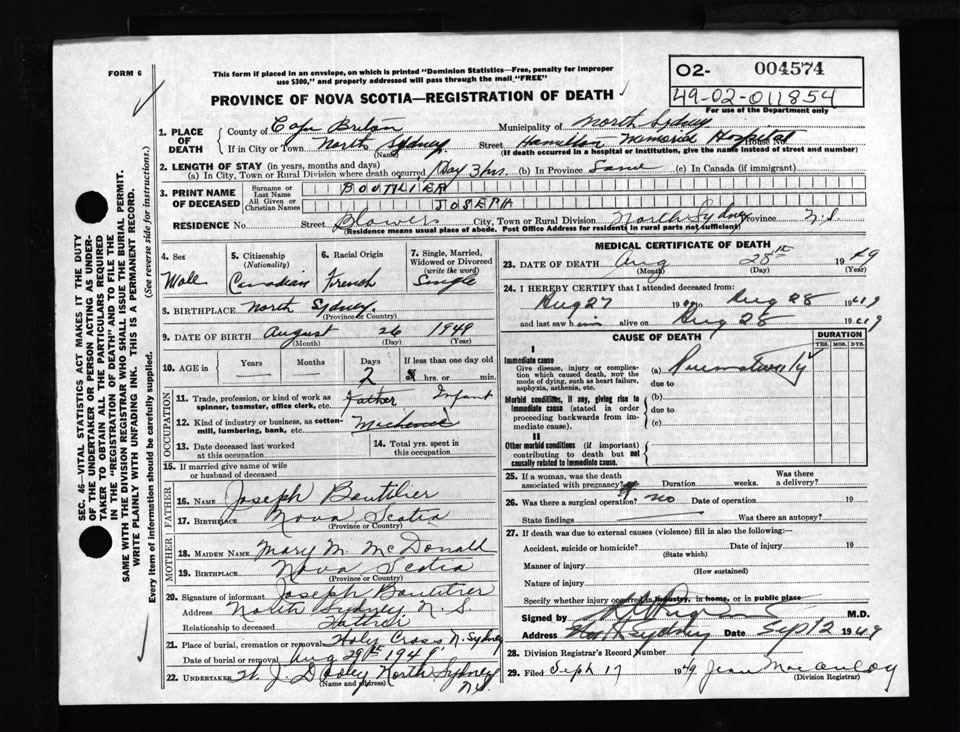 FORM 6
This form if placed in an envelope, on which is printed "Dominion Statistics—Free, penalty for improper
use $300," and properly addressed will pass through the mail "FREE"
O2- 004574
49-02-011854
For use of the Department only
PROVINCE OF NOVA SCOTIA—REGISTRATION OF DEATH
1. PLACE OF DEATH
County of Cape Breton Municipality of North Sydney
If in City or Town North Sydney (Name) Street Hamilton Memorial Hospital House No.
(If death occurred in a hospital or institution, give the name instead of street and number)
2. LENGTH OF STAY (in years, months and days)
(a) In City, Town or Rural Division where death occurred 1 Day 3 hrs. (b) In Province Same (c) In Canada (if immigrant)
3. PRINT NAME OF DECEASED
Surname or Last Name BOUTILIER
All Given or Christian Names JOSEPH
RESIDENCE No. Street Blowers City, Town or Rural Division North Sydney Province N.S.
(Residence means usual place of abode. Post Office Address for residents in rural parts not sufficient)
4. Sex Male
5. Citizenship (Nationality) Canadian
6. Racial Origin French
7. Single, Married, Widowed or Divorced (write the word) Single
8. BIRTHPLACE North Sydney (Province or Country)
9. DATE OF BIRTH August 26 1949
(Month) (Day) (Year)
10. AGE in Years Months Days 2 If less than one day old hrs. or min.
OCCUPATION
11. Trade, profession, or kind of work as spinner, teamster, office clerk, etc. Father Infant
12. Kind of industry or business, as cotton-mill, lumbering, bank, etc. Mechanic
13. Date deceased last worked at this occupation
14. Total yrs. spent in this occupation
15. If married give name of wife or husband of deceased
FATHER
16. NAME Joseph Boutilier
17. BIRTHPLACE Nova Scotia
(Province or Country)
MOTHER
18. MAIDEN NAME Mary M. McDonald
19. BIRTHPLACE Nova Scotia
(Province or Country)
20. Signature of informant Joseph Boutilier
Address North Sydney N.S.
Relationship to deceased Father
21. Place of burial, cremation or removal Holy Cross N. Sydney
Date of burial or removal Aug 29th 1949
22. UNDERTAKER North Sydney N.S.
(Name and address)
MEDICAL CERTIFICATE OF DEATH
23. DATE OF DEATH Aug 28th 1949
(Month) (Day) (Year)
24. I HEREBY CERTIFY that I attended deceased from:
Aug 27 1949 to Aug 28 1949
and last saw him alive on Aug 28 1949
CAUSE OF DEATH
DURATION
YRS. MOS. DYS.
I
Immediate cause
Give disease, injury or complication which caused death, NOT the mode of dying, such as heart failure, asphyxia, asthenia, etc.
(a) Prematurity
due to
Morbid conditions, if any, giving rise to immediate cause (stated in order proceeding backwards from immediate cause).
(b)
due to
(c)
II
Other morbid conditions (if important) contributing to death but not causally related to immediate cause.
25. If a woman, was the death associated with pregnancy? Duration weeks. Was there a delivery?
26. Was there a surgical operation? no Date of operation 19
State findings Was there an autopsy?
27. If death was due to external causes (violence) fill in also the following:—
Accident, suicide or homicide? Date of injury 19
(State which)
Manner of injury
(How sustained)
Nature of injury
Specify whether injury occurred in industry, in home, or in public place
Signed by M.D.
Address Sydney Date Sep 12 1949
28. Division Registrar's Record Number
29. Filed Sept 17 1949 Jean
(Division Registrar)
SEC. 46—VITAL STATISTICS ACT MAKES IT THE DUTY
OF THE UNDERTAKER OR PERSON ACTING AS UNDER-
TAKER TO OBTAIN ALL THE PARTICULARS REQUIRED
IN THE "REGISTRATION OF DEATH" AND TO FILE THE
SAME WITH THE DIVISION REGISTRAR WHO SHALL ISSUE THE BURIAL PERMIT.
WRITE PLAINLY WITH UNFADING INK. THIS IS A PERMANENT RECORD.
Every item of information should be carefully supplied. (See reverse side for instructions.)